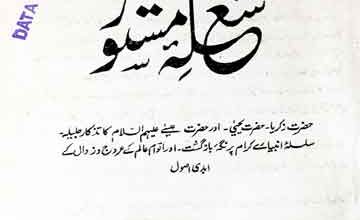 DATA
شعلۂ مستور
حضرت زکریا۔ حضرت یحییٰ۔ اور حضرت عیسےٰ علیہم السلام کا تذکارِ جلیلہ۔
سلسلۂ انبیائے کرام پر نگۂ بازگشت۔ اور اقوامِ عالم کے عروج و زوال کے
ابدی اصول